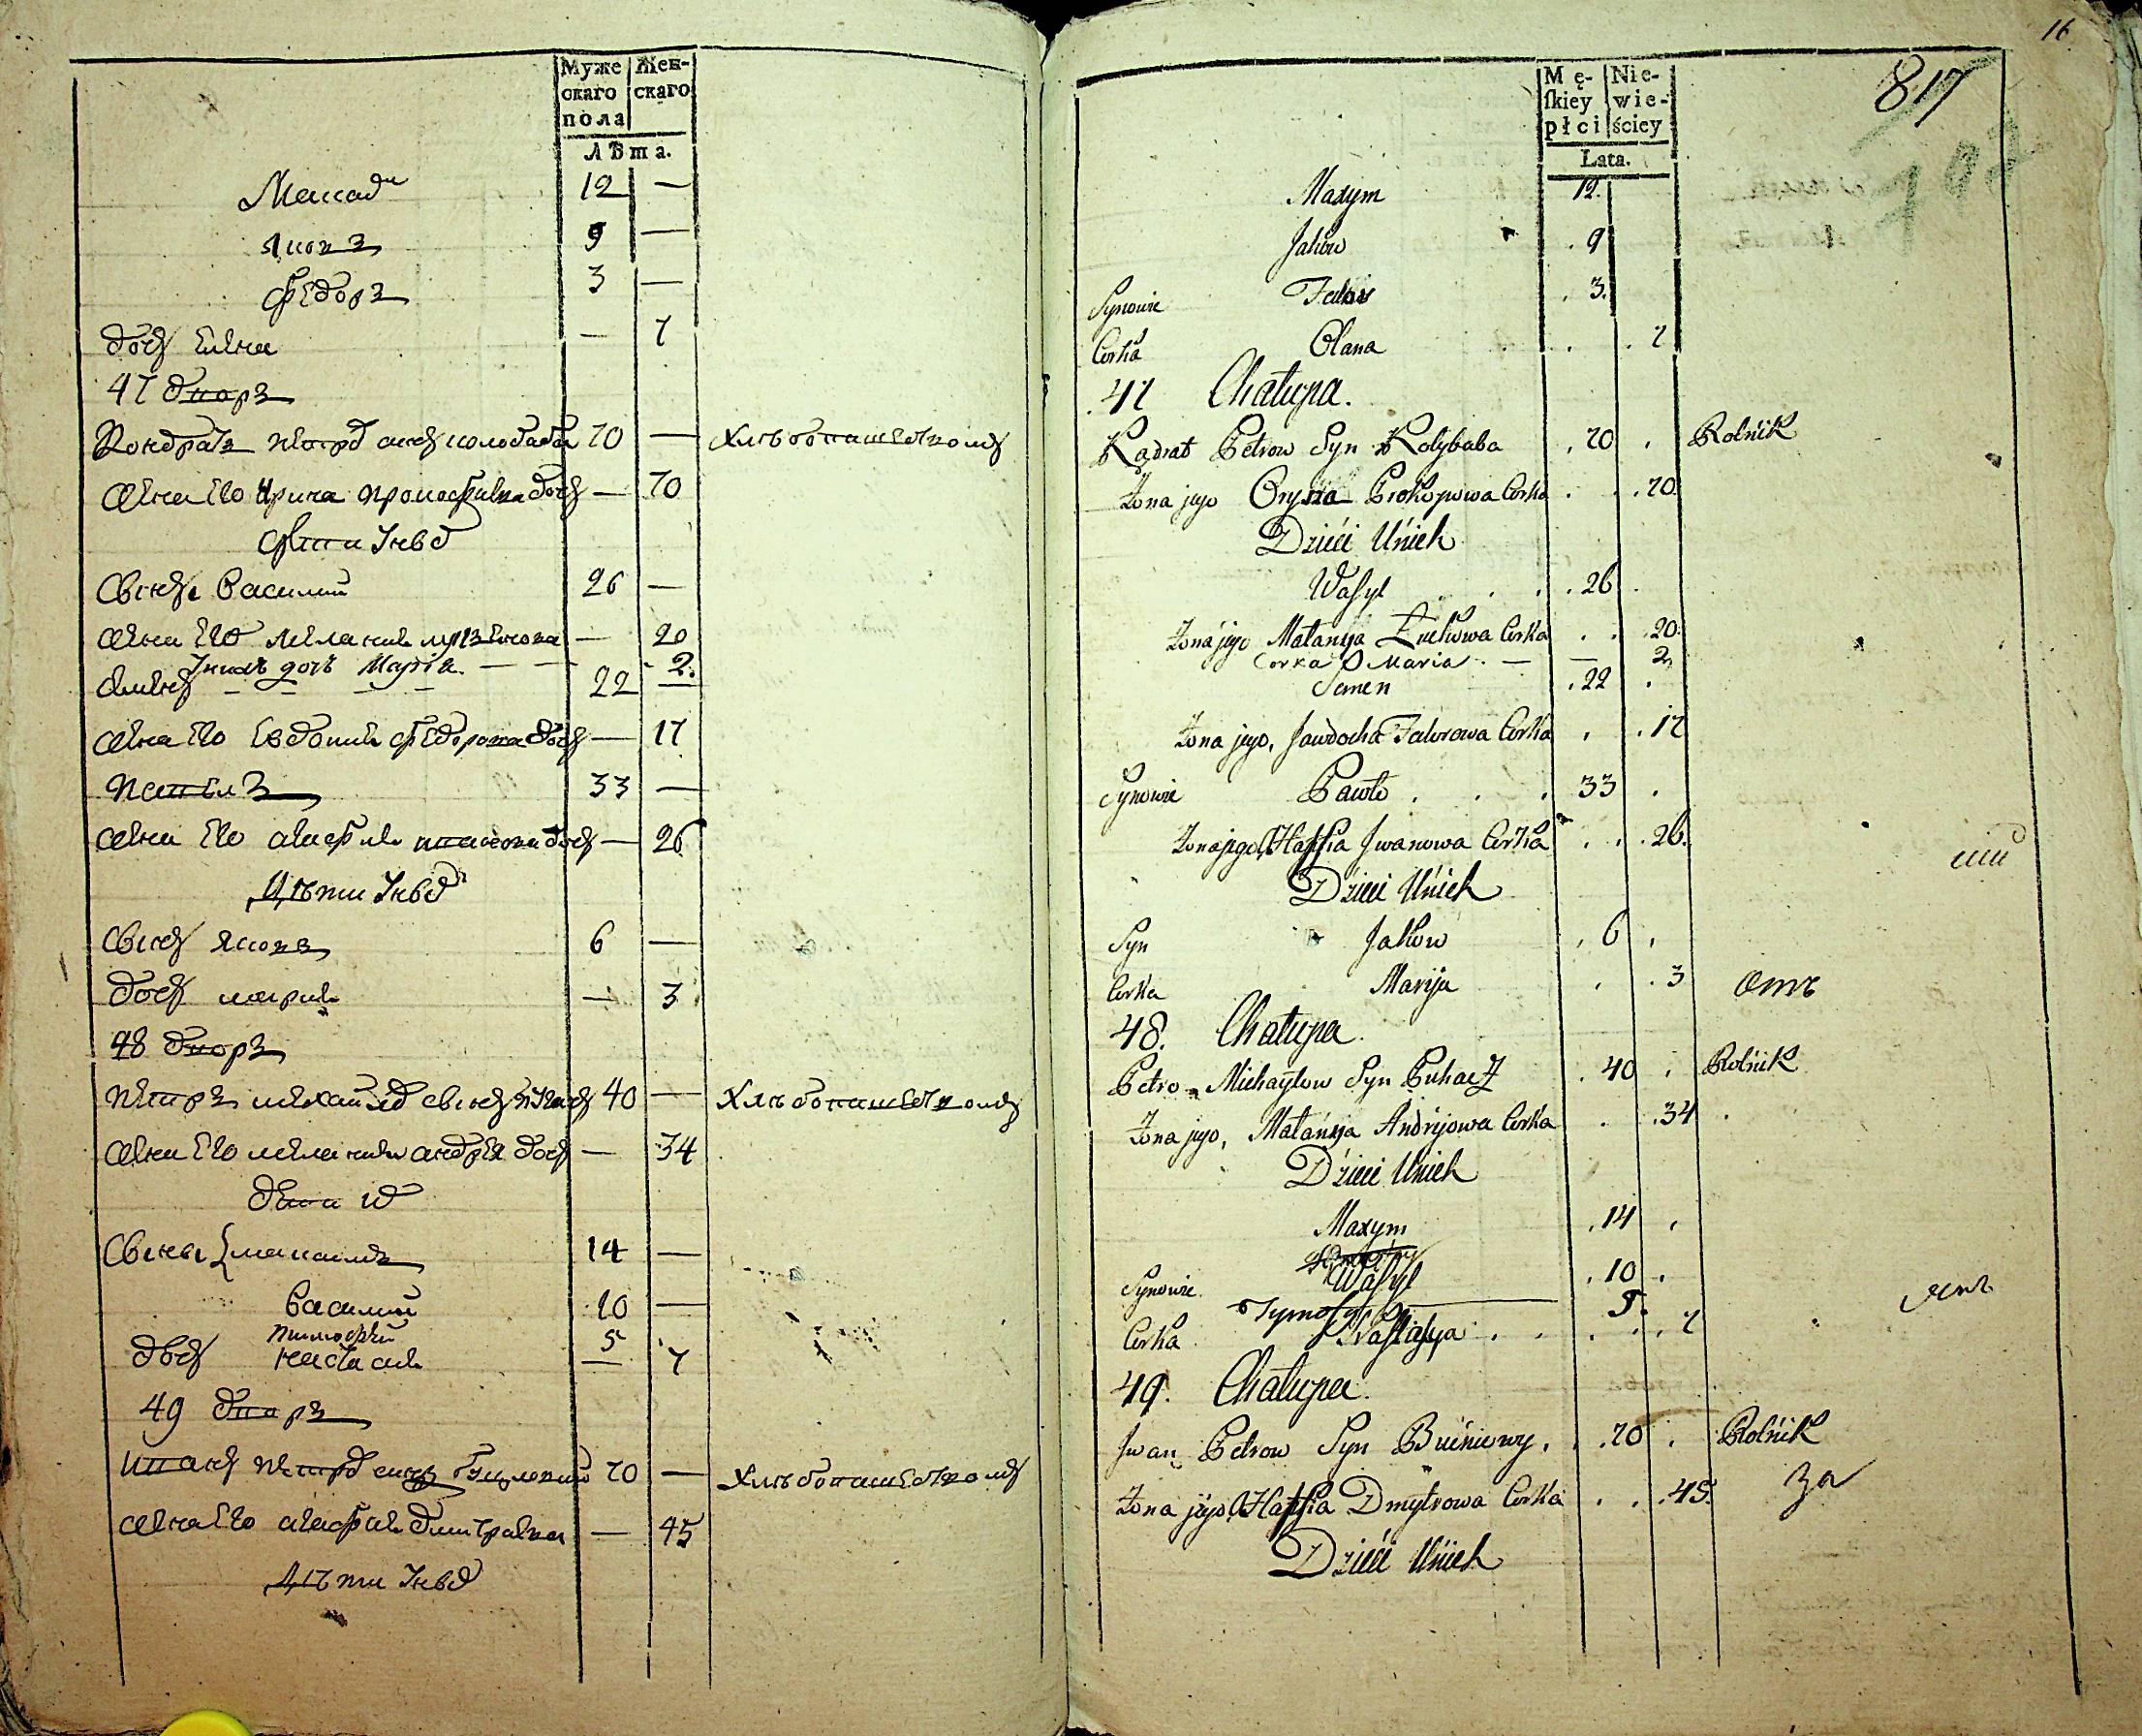 Муже Жен-
скаго скаго
пола
Лѣта.
12 —
Яковъ 9 —
Федоръ 3 —
дочь Елена — 7
47 дворъ
Кондратъ Петровъ сынъ Колобаба 70 — Хлѣбопашествомъ
жена его Ирина Прокофьева дочь — 70
Дети у нихъ
Сынъ Василий 26 —
жена его Меланья — 20
у нихъ дочь Марїя — — 2.
22 —
жена его Евдокия Федорова дочь — 17
Павелъ 33 —
жена его Агафия Иванова дочь — 26
Дѣти у нихъ
Сынъ Яковъ 6 —
дочь Мария — 3
48 дворъ
Петръ Михайловъ сынъ Пугачъ 40 — Хлѣбопашествомъ
жена его Мелания Андрея дочь — 34
дети
Сыны 14 —
Василий 10 —
Тимофей 5
дочь Настасия — 7
49 дворъ
Иванъ Петровъ сынъ 70 — Хлѣбопашествомъ
жена его Агафия — 45
Дѣти у нихъ
16
817
Mę- Nie-
ſkiey wie-
płci ściey
Lata.
Maxym 12.
Jakow . 9
Synowie Fedor . 3.
Corka Olana . . 7
.47 Chałupa.
Kądrat Petrow Syn Kolybaba . 70 . Rolnik
Żona jego Oryna Prokopowa Corka . . .70.
Dzieci Unich
Waſyl . . . 26 .
Żona jego Małanyja Corka . . .20.
Corka Maria — — 2
Semen .22 .
Żona jego, Jawdocha Fedorowa Corka . .17
Synowie Pawło . . . 33 .
Żona jego, Hapſia Jwanowa Corka . . .26.
Dzieci Unich
Syn Jakow . 6 .
Corka Marija . . 3 отъ
48. Chałupa.
Petro Michayłow Syn Puhacz . 40 . Rolnik
Żona jego, Małanyja Andrijowa Corka . .34 .
Dzieci Unich
Maxym .14 .
Synowie Waſyl .10 .
Tymofy 5.
Corka Naſtaſya . . . . . 7
49. Chałupa.
Jwan Petrow Syn . .70 . Rolnik
Żona jego, Hapſia Dmytrowa Corka . . .45. за
Dzieci Unich